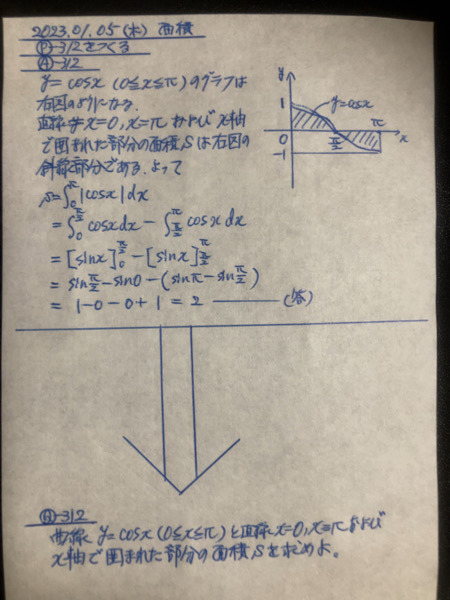 2023.01.05(木) 面積
Ⓟ-312をつくる
Ⓐ-312
y=cosx (0≦x≦π)のグラフは
右図のようになる.
直線 x=0, x=π および x軸
で囲まれた部分の面積Sは右図の
斜線部分である.よって
S=∫₀^π |cosx|dx
=∫₀^{π/2} cosxdx − ∫_{π/2}^π cosx dx
=[sinx]₀^{π/2} − [sinx]_{π/2}^π
= sin π/2 − sin0 − (sinπ − sin π/2)
= 1−0−0+1 = 2 ——— (答)
y
1
y=cosx
π
0
π/2
x
−1
Ⓠ-312
曲線 y=cosx (0≦x≦π)と直線 x=0, x=π および
x軸で囲まれた部分の面積Sを求めよ。